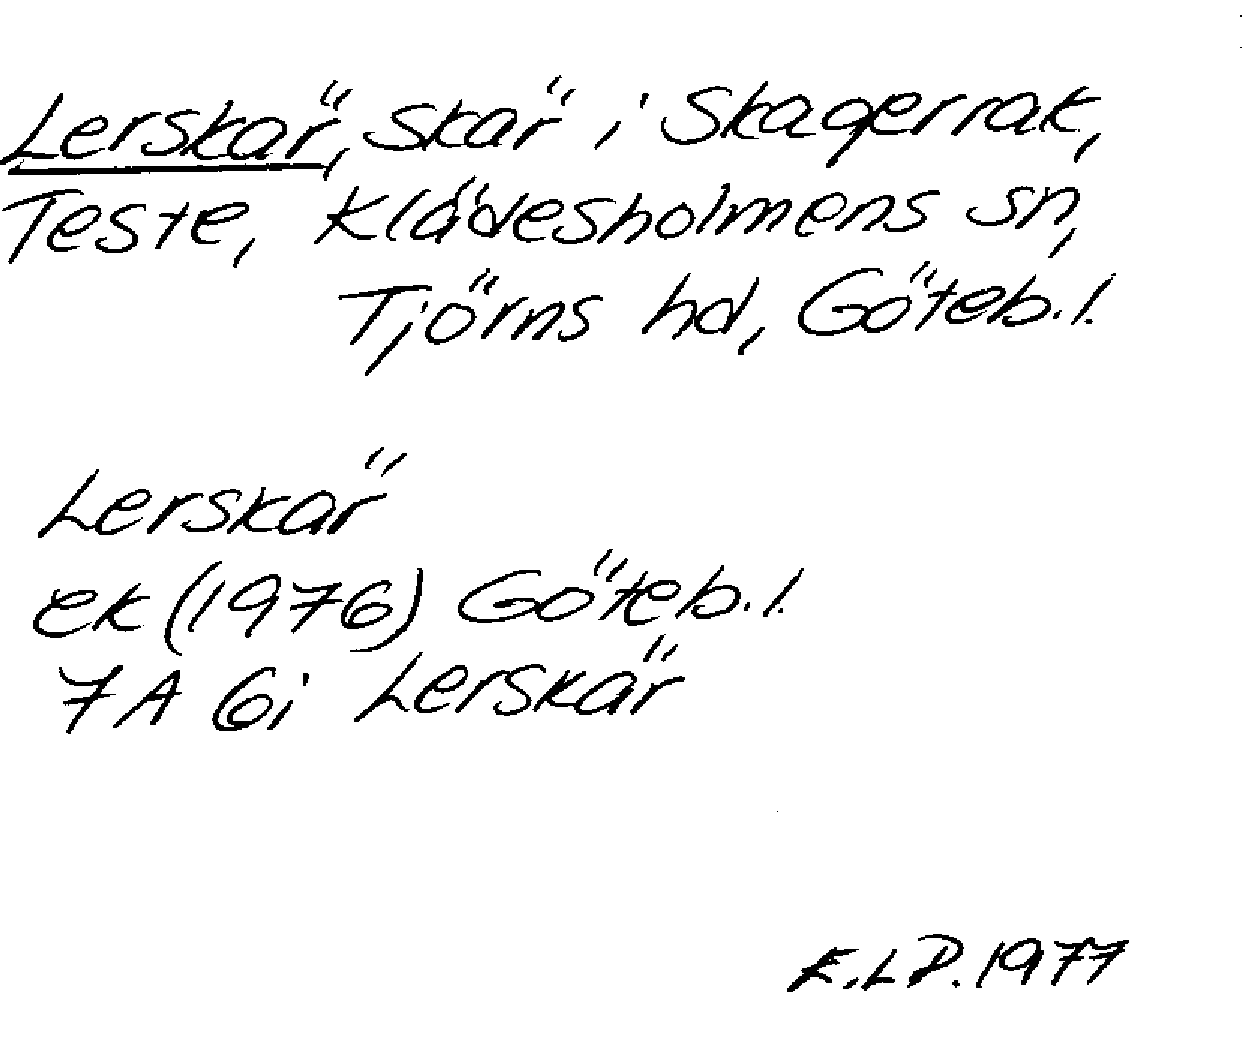 Lerskär, skär i Skagerrak,
Teste, Klädesholmens sn,
Tjörns hd, Göteb.l.
Lerskär
ek (1976) Göteb.l.
7A 6i Lerskär
E.LD. 1977